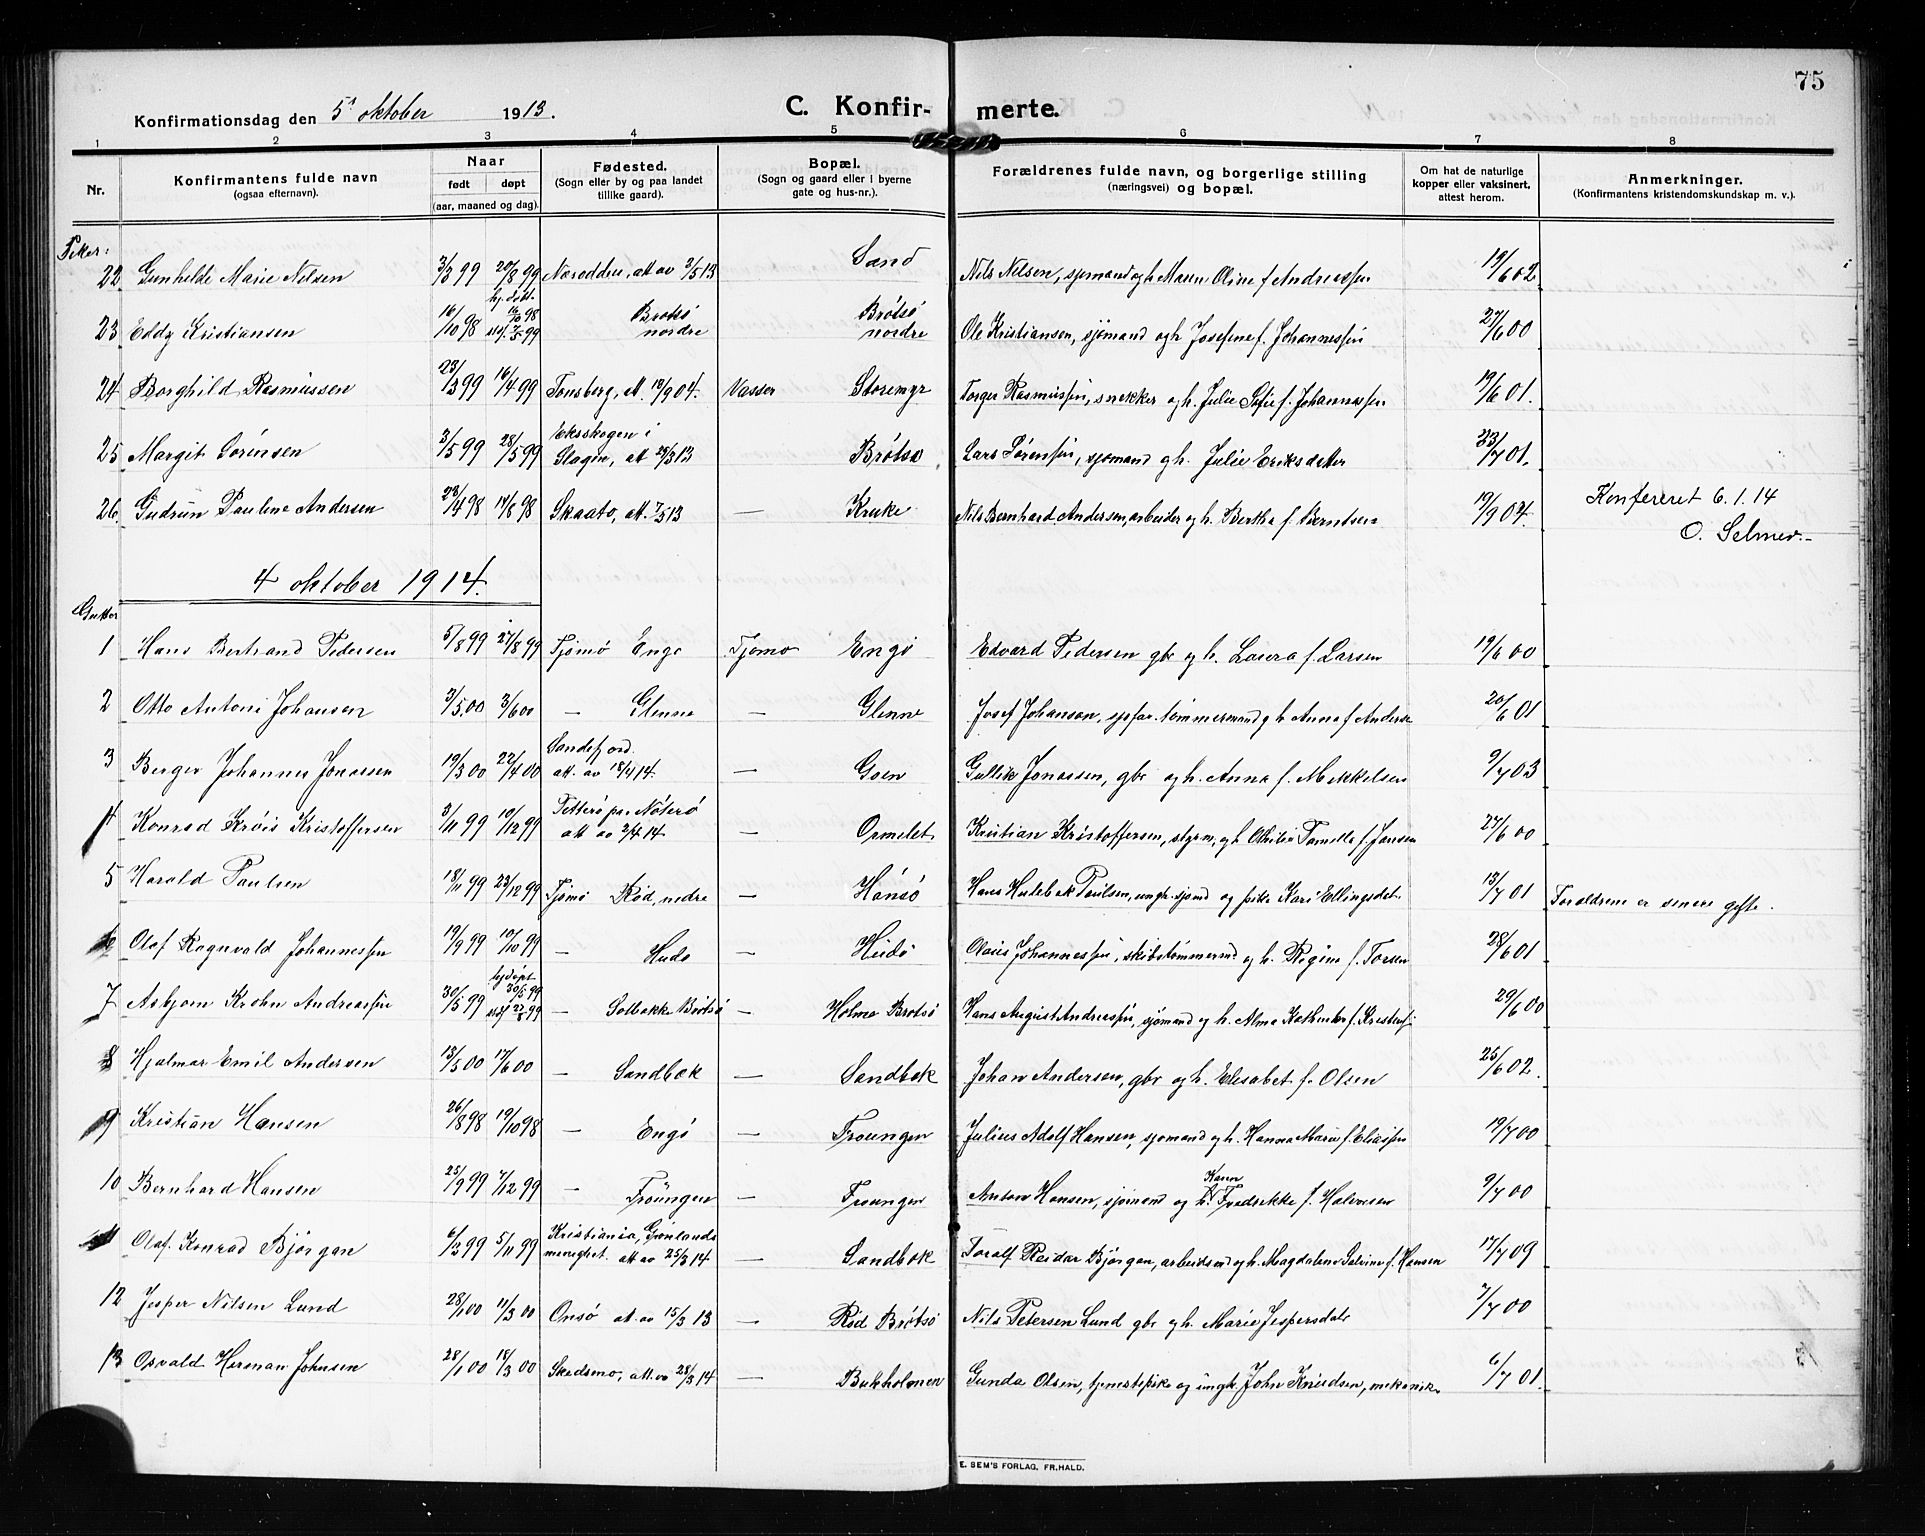 75
Konfirmationsdag den 5' oktober 1913. C. Konfir- merte.
1 2 3 4 5 6 7 8
Nr. Konfirmantens fulde navn (ogsaa efternavn). Naar født døpt (aar, maaned og dag). Fødested. (Sogn eller by og paa landet tillike gaard). Bopæl. (Sogn og gaard eller i byerne gate og hus-nr.). Forældrenes fulde navn, og borgerlige stilling (næringsvei) og bopæl. Om hat de naturlige kopper eller vaksinert, attest herom. Anmerkninger. (Konfirmantens kristendomskundskap m. v.).
Piker:
22 Gunhilde Marie Nilsen 3/3 99 20/8 99 att av 3/5 13 Sand Nils Nilsen, sjømand og h. Maren Oline f. Andreassen 19/6 02
23 Eddy Kristiansen 16/10 98 hj. døbt 16/10 98 st. f. 7/5 99 Brøtsø nordre Brøtsø nordre Ole Kristiansen, sjømand og h. Josefine f. Johannessen 27/6 00
24 Borghild Rasmussen 23/3 99 16/4 99 Tønsberg, att. 18/9 04. Vasser Storemyr Torger Rasmussen, snekker og h. Julie Sofie f. Johannessen 19/6 01.
25 Margit Sørensen 3/5 99 28/5 99 Eksskogen i Slagen, att 29/3 13 Brøtsø Lars Sørensen, sjømand og h. Julie Eriksdatter 23/7 01.
26 Gudrun Pauline Andersen 23/4 98 14/8 98 Skaato, att. 7/5 13 — Kruke Nils Bernhard Andersen, arbeider og h. Bertha f. Berntsen 19/9 04. Konfereret 6.1.14
O. Selmer.-
4 oktober 1914.
Gutter
1 Hans Bertrand Pedersen 5/8 99 27/8 99 Tjømø Engø Tjømø Engø Edvard Pedersen gbr og h. Laura f. Larsen 19/6 00
2 Otto Antoni Johansen 3/5.00 3/6 00 — Glenne — Glenne Josef Johansen, tømmermand og h Anna f Anderse 20/6 01
3 Berger Johannes Jonassen 19/3 00 22/4 00 Sandefjord. att. av 18/4 14. — Goen Gullik Jonassen, gbr og h. Anna f. Mikkelsen 9/7 03
4 Konrad Krøis Kristoffersen 3/11 99 10/12 99 pr. Nøterø att av 2/4 14 — Ormelet Kristian Kristoffersen, styrm, og h. Othilie Pamella f. Jansen 27/6 00
5 Harald Paulsen 18/11 99 23/12 99 Tjømø Rød, nedre — Hønsø Hans Hulebak Paulsen, ungk. sjømd og pike Kari Ellingsdet. 15/7 01 Foraldrene er senere gifte.
6 Olaf Ragnvald Johannessen 19/9 99 10/10 99 — Hudø — Hudø Olaus Johannessen, skibstømmermd og h. Regine f. Torsen 28/6 01
7 Asbjørn Krohn Andreassen 30/5 99 hj døpt 30/5 99 st. f 27/8 99 — Solbakke Brøtsø — Holme Brøtsø Hans August Andreassen, sjømand og h. Alma Kathinka f. 29/6 00
8 Hjalmar Emil Andersen 15/5 00 17/6 00 — Sandbæk — Sandbæk Johan Andersen, gbr og h. Elisabet f. Olsen 25/6 02.
9 Kristian Hansen 26/8 98 19/10 98 — Engø — Treungen Julius Adolf Hansen, sjømand og h. Hanna Marie f. Eliassen 19/7 00
10 Bernhard Hansen 25/9 99 7/12 99 — Treungen — Treungen Anton Hansen, sjømand og h. Karen Fredrikke f. Halvorsen 9/7 00
11 Olaf Konrad Bjørgan 6/2 99 5/11 99 Kristiania, Grønlands menighet. att av 25/3 14 — Sandbæk Toralf Reidar Bjørgan, arbeidsmd og h. Magdalene f. Hansen 17/7 09
12 Jesper Nilsen Lund 28/1 00 11/3 00 Onsø att. av 15/3 13 — Rød Brøtsø Nils Petersen Lund gbr og h. Marie Jespersdatr 7/7 00
13 Osvald Herman Johnsen 28/1 00 18/3 00 Skedsmo, att. av 28/3 14 — Bukholmen Gunda Olsen, tjenestepike og ungk. John Knudsen, mekanik. 6/7 01.
E. SEM'S FORLAG, FR.HALD.